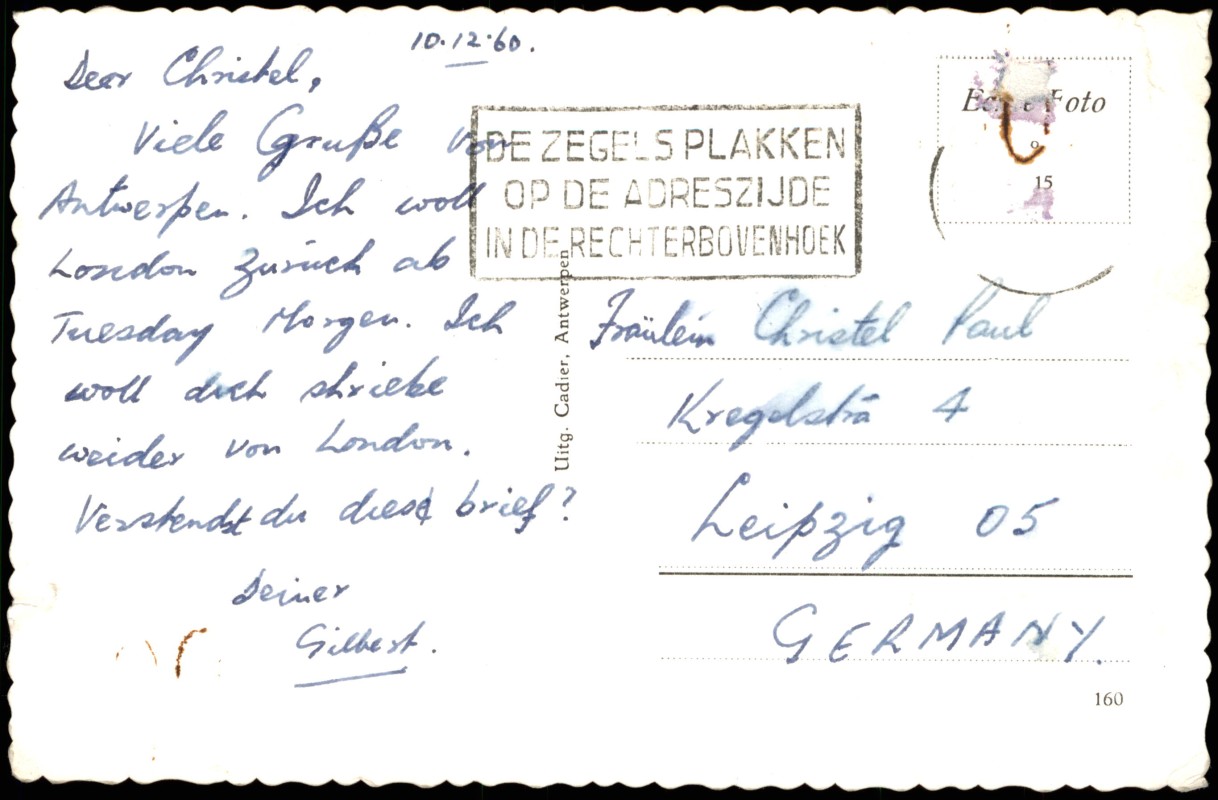 10.12.60.
Dear Christel,
Viele Gruße von
Antwerpen. Ich woll
London zurück ab
Tuesday Morgen. Ich
woll dich shriebe
weider von London.
Verstendst du diese brief?
Deiner
Gilbert.
DE ZEGELS PLAKKEN
OP DE ADRESZIJDE
IN DE RECHTERBOVENHOEK
Foto
15
Uitg. Cadier, Antwerpen
Fräulein Christel Paul
Kregelstra 4
Leipzig 05
GERMANY.
160